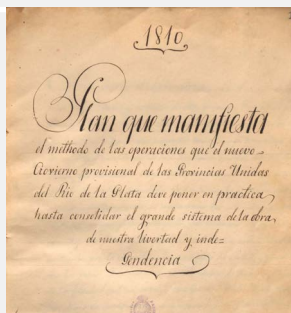 1810.
Plan que manifiesta
el methodo de las operaciones que el nuevo
Govierno provisional de las Provincias Unidas
del Rio de la Plata deve poner en practica,
hasta consolidar el grande sistema de la obra
de nuestra livertad y inde=
pendencia